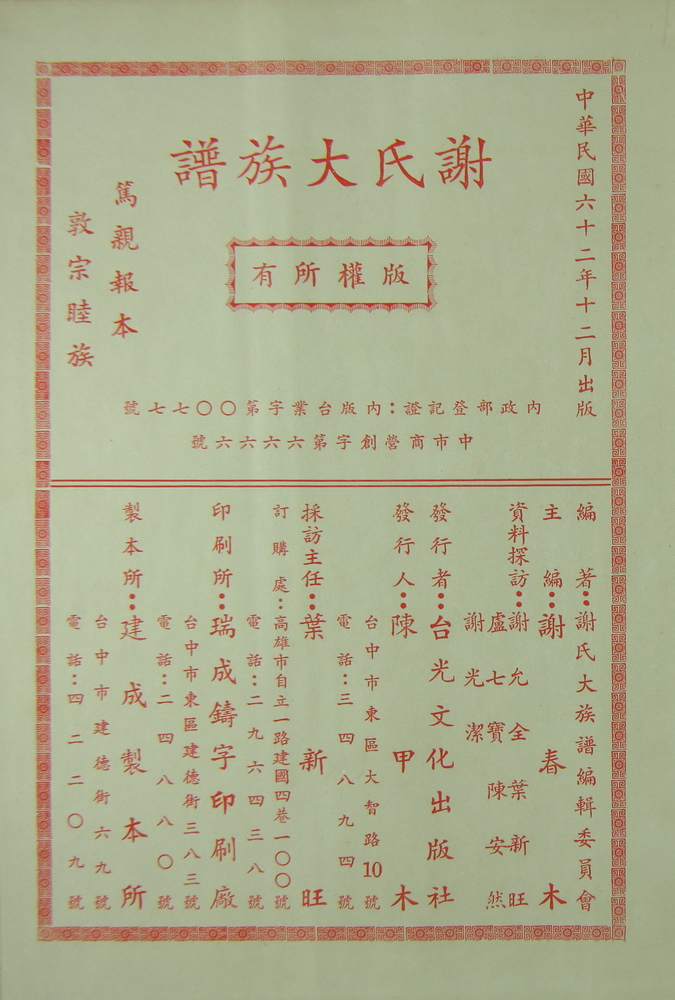 中華民國六十二年十二月出版
謝氏大族譜
版權所有
篤親報本
敦宗睦族
內政部登記證：內版台業字第〇〇七七號
中市商營創字第六六六六號
編著：謝氏大族譜編輯委員會
主編：謝春木
資料採訪：謝允全 葉新旺
盧七寶 陳安然
謝光潔
發行者：台光文化出版社
發行人：陳甲木
台中市東區大智路10號
電話：三四八九四號
採訪主任：葉新旺
訂購處：高雄市自立一路建國四巷一〇〇號
電話：二九六四三八號
印刷所：瑞成鑄字印刷廠
台中市東區建德街三八三號
電話：二四八八〇號
製本所：建成製本所
台中市建德街六九號
電話：四二二〇九號